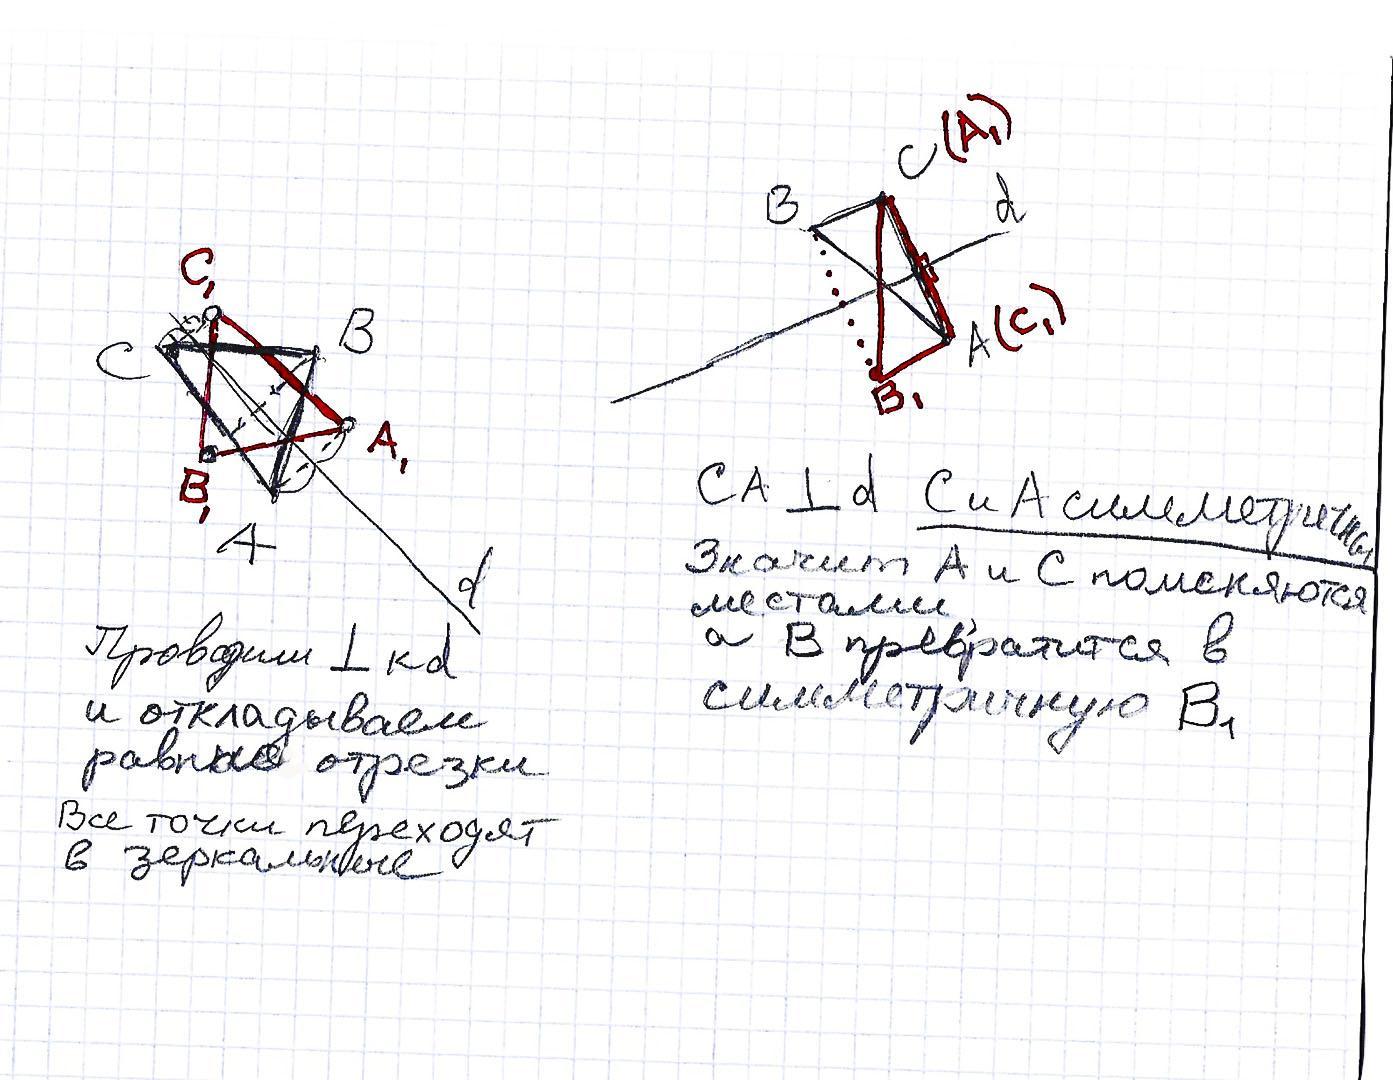 C₁
B
C
A₁
B₁
A
d
Проводим ⊥ к d
и откладываем
равные отрезки
Все точки переходят
в зеркальные
C (A₁)
B
d
A (C₁)
B₁
CA ⊥ d C и A симметричны
Значит A и C поменяются
местами,
а B превратится в
симметричную B₁